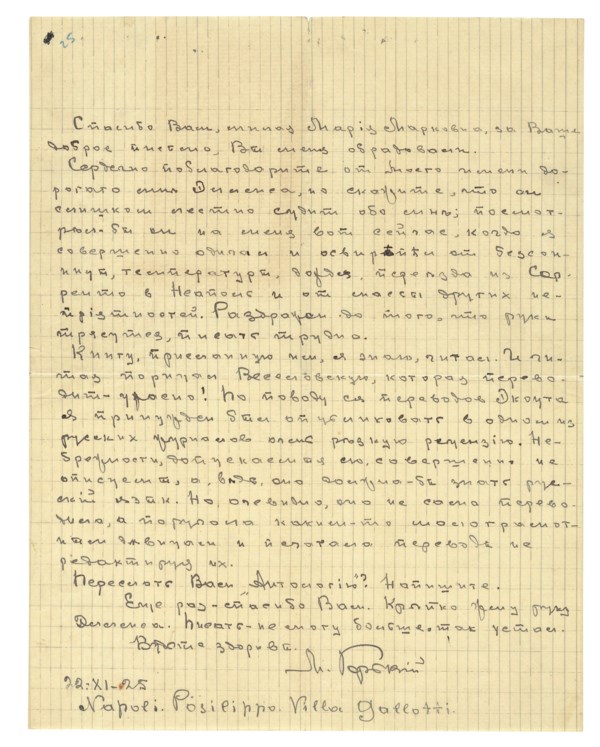 25.
Спасибо Вам, милая Марiя Марковна, за Ваше
доброе письмо, Вы меня обрадовали.
Сердечно поблагодарите от моего имени до-
рогого мне Дименса, но скажите, что он
слишком лестно судит обо мне; посмот-
рел-бы он на меня вот сейчас, когда я
совершенно одичал и освирѣпел от бессон-
ницы, температуры, дождя, переезда из Сор-
ренто в Неаполь и от массы других не-
прiятностей. Раздражен до того, что руки
трясутся, писать трудно.
Книгу, присланную им, я знаю, читал. И чи-
тая порицал Веселовскую, которая перево-
дит-ужасно! По поводу ея переводов Локка
я принужден был опубликовать в одном из
русских журналов очень резкую рецензiю. Не-
брежности, допускаемыя ею, совершенно не
описуемы, а, ведь, она должна-бы знать рус-
скiй язык. Но, очевидно, она не сама перево-
дила, а поручала каким-то малограмот-
ным девицам и печатала переводы не
редактируя их.
Переслать Вам Антологiю? Напишите.
Еще раз-спасибо Вам. Крѣпко жму руку
Писать-не могу больше, так устал.
Будьте здоровы.
М. Горькiй
22.XI-25
Napoli. Posilippo. Villa Gallotti.